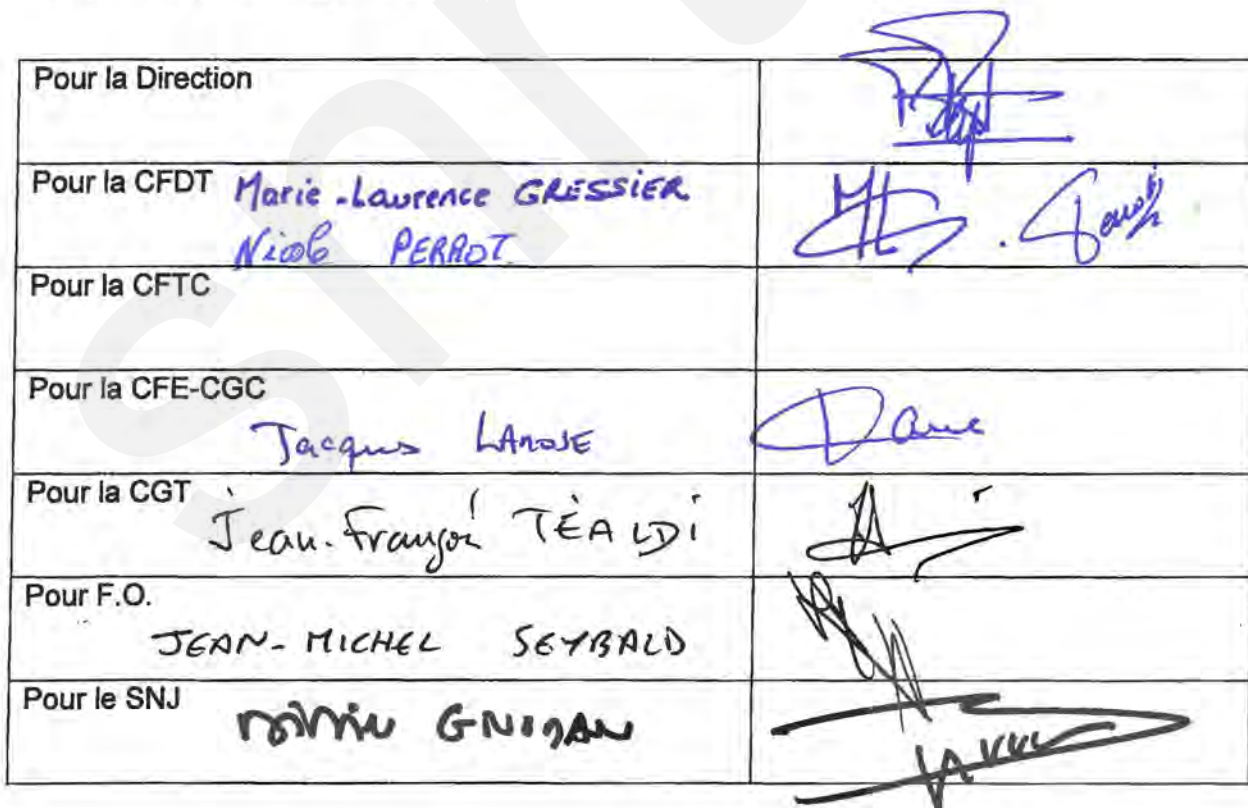 Pour la Direction
Pour la CFDT Marie-Laurence GRESSIER
Nicole PERROT
Pour la CFTC
Pour la CFE-CGC
Jacques
Pour la CGT
Jean-François TÉALDI
Pour F.O.
JEAN-MICHEL SEYBALD
Pour le SNJ
snj